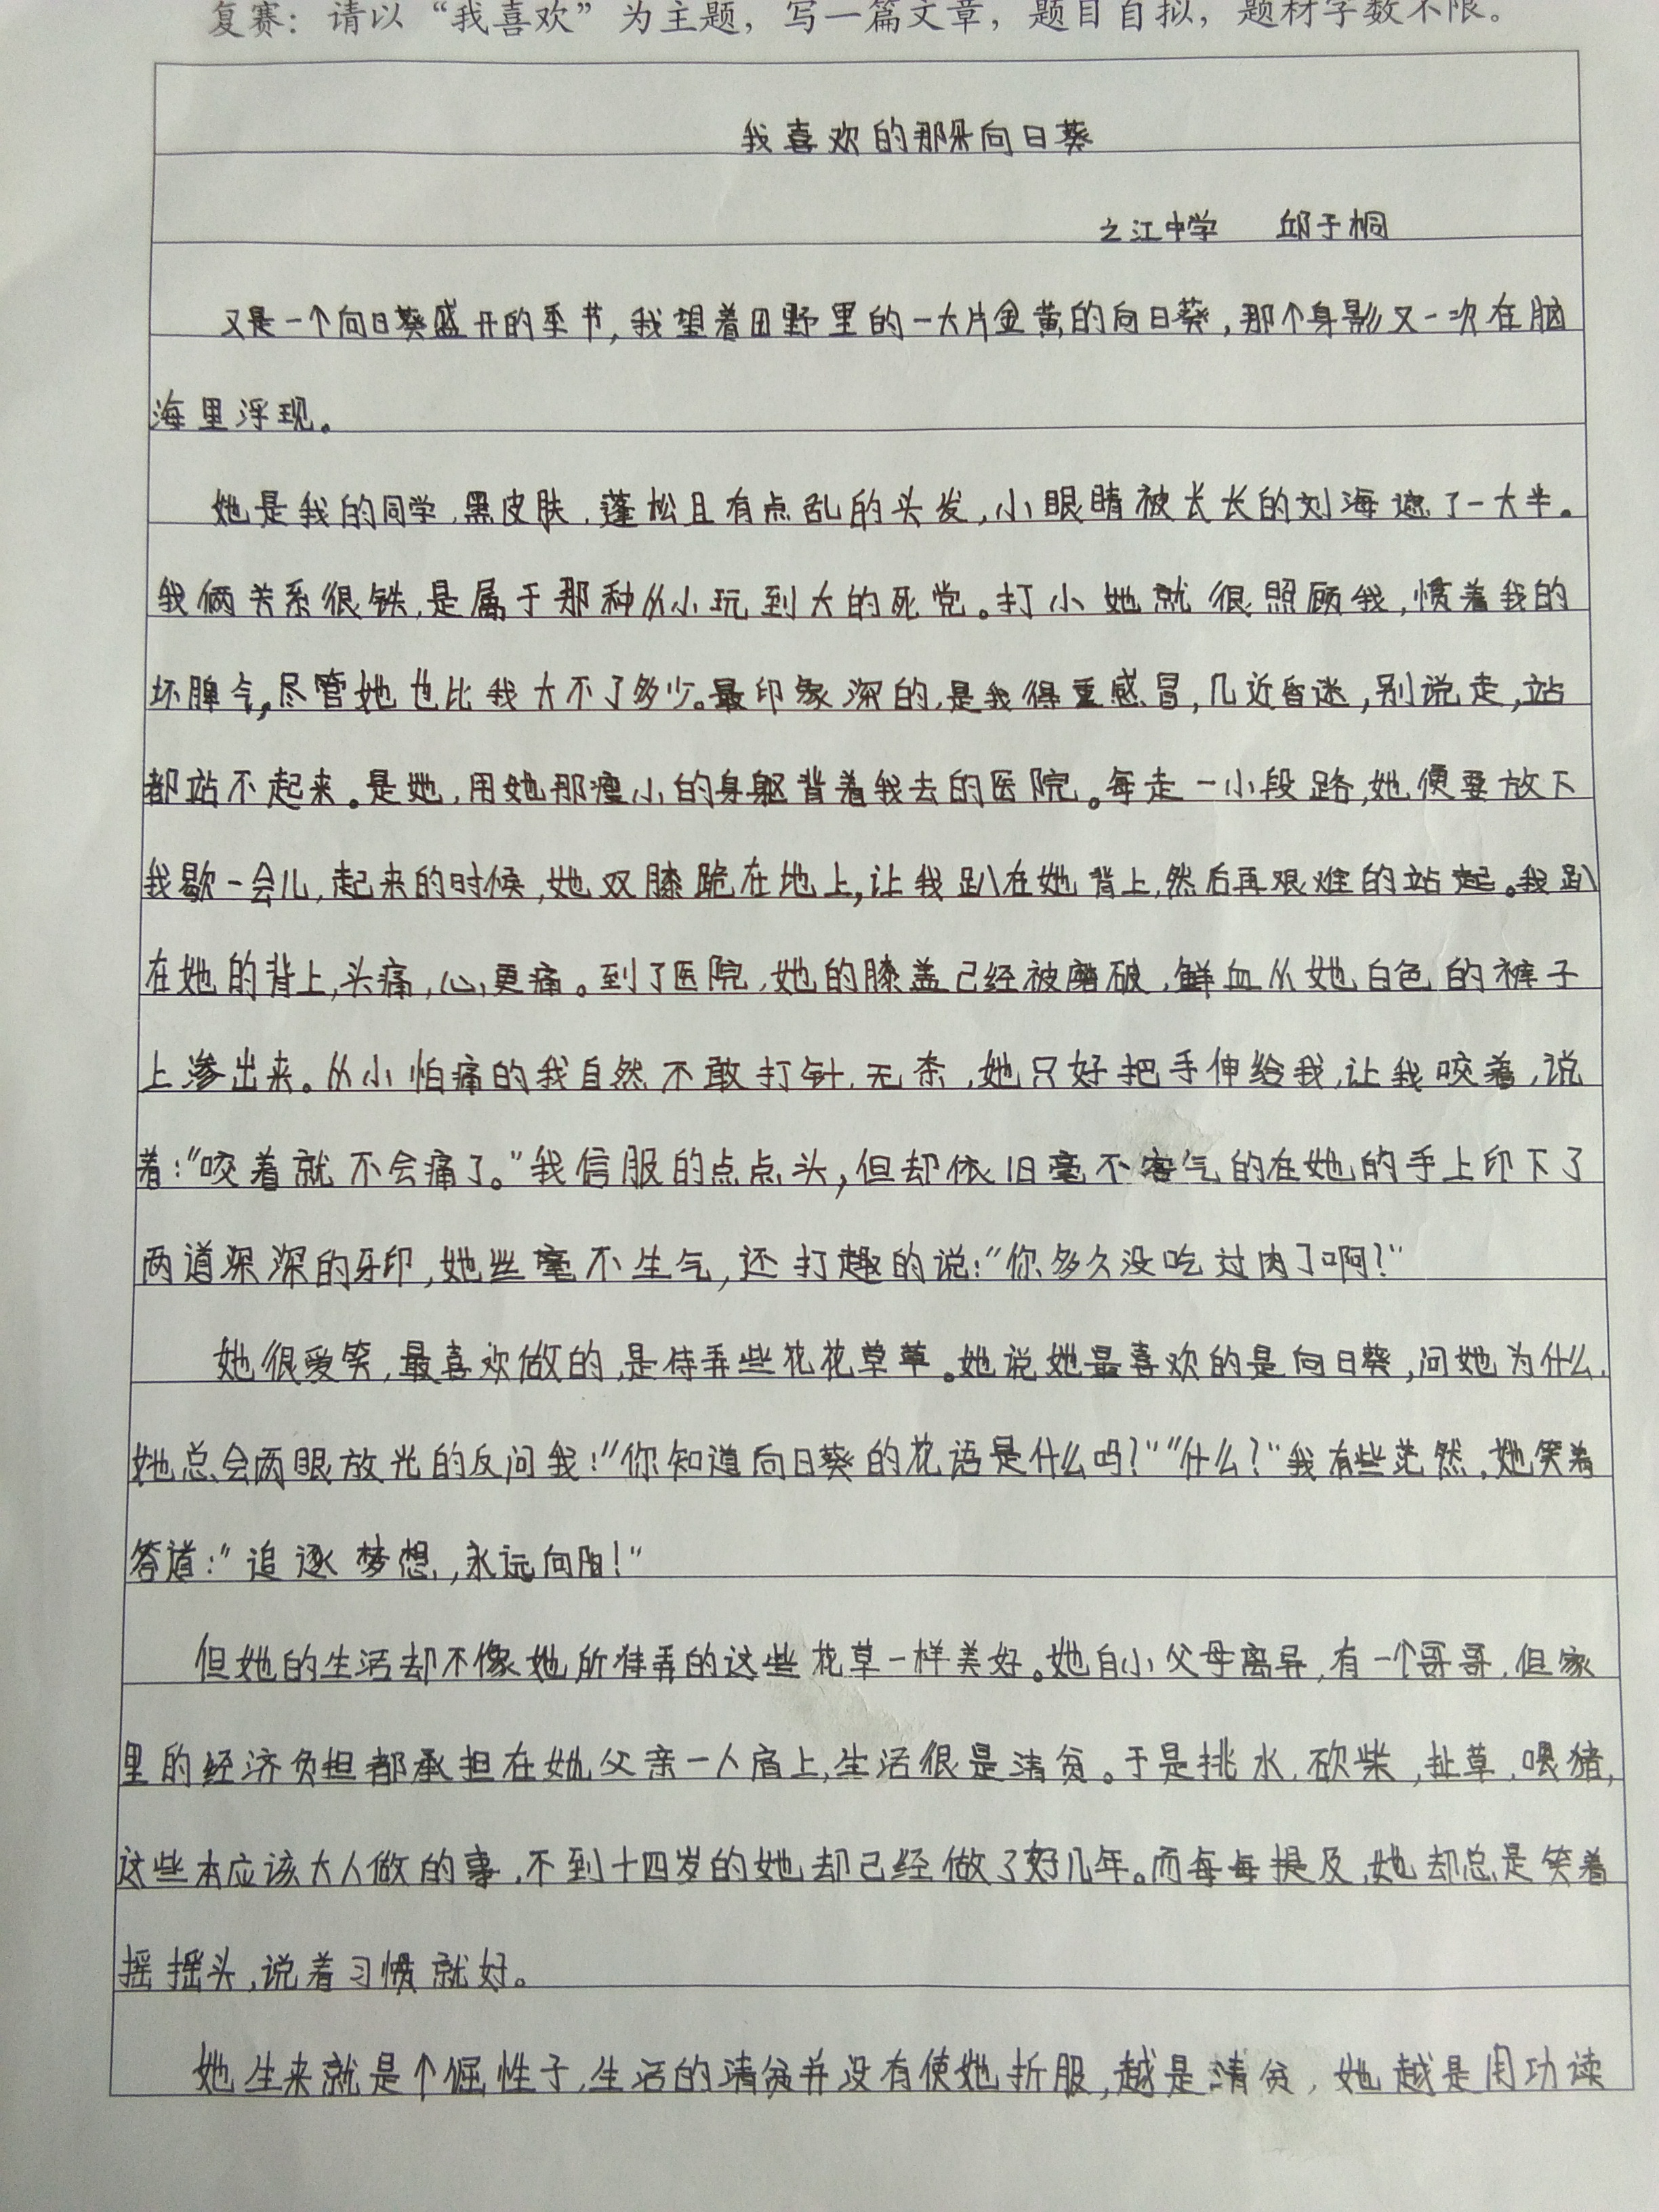 复赛：请以“我喜欢”为主题，写一篇文章，题目自拟，题材字数不限。
我喜欢的那朵向日葵
之江中学 邱于桐
又是一个向日葵盛开的季节，我望着田野里的一大片金黄的向日葵，那个身影又一次在脑
海里浮现。
她是我的同学，黑皮肤，蓬松且有点乱的头发，小眼睛被长长的刘海遮了一大半。
我俩关系很铁，是属于那种从小玩到大的死党。打小她就很照顾我，惯着我的
坏脾气，尽管她也比我大不了多少。最印象深的，是我得重感冒，几近昏迷，别说走，站
都站不起来。是她，用她那瘦小的身躯背着我去的医院。每走一小段路，她便要放下
我歇一会儿，起来的时候，她双膝跪在地上，让我趴在她背上，然后再艰难的站起。我趴
在她的背上，头痛，心更痛。到了医院，她的膝盖已经被磨破，鲜血从她白色的裤子
上渗出来。从小怕痛的我自然不敢打针，无奈，她只好把手伸给我，让我咬着，说
着：“咬着就不会痛了。”我信服的点点头，但却依旧毫不客气的在她的手上印下了
两道深深的牙印，她丝毫不生气，还打趣的说：“你多久没吃过肉了啊？”
她很爱笑，最喜欢做的，是侍弄些花花草草。她说她最喜欢的是向日葵，问她为什么，
她总会两眼放光的反问我：“你知道向日葵的花语是什么吗？”“什么？”我有些茫然，她笑着
答道：“追逐梦想，永远向阳！”
但她的生活却不像她所侍弄的这些花草一样美好。她自小父母离异，有一个哥哥，但家
里的经济负担都承担在她父亲一人肩上，生活很是清贫。于是挑水，砍柴，扯草，喂猪，
这些本应该大人做的事，不到十四岁的她却已经做了好几年。而每每提及，她却总是笑着
摇摇头，说着习惯就好。
她生来就是个倔性子，生活的清贫并没有使她折服，越是清贫，她越是用功读